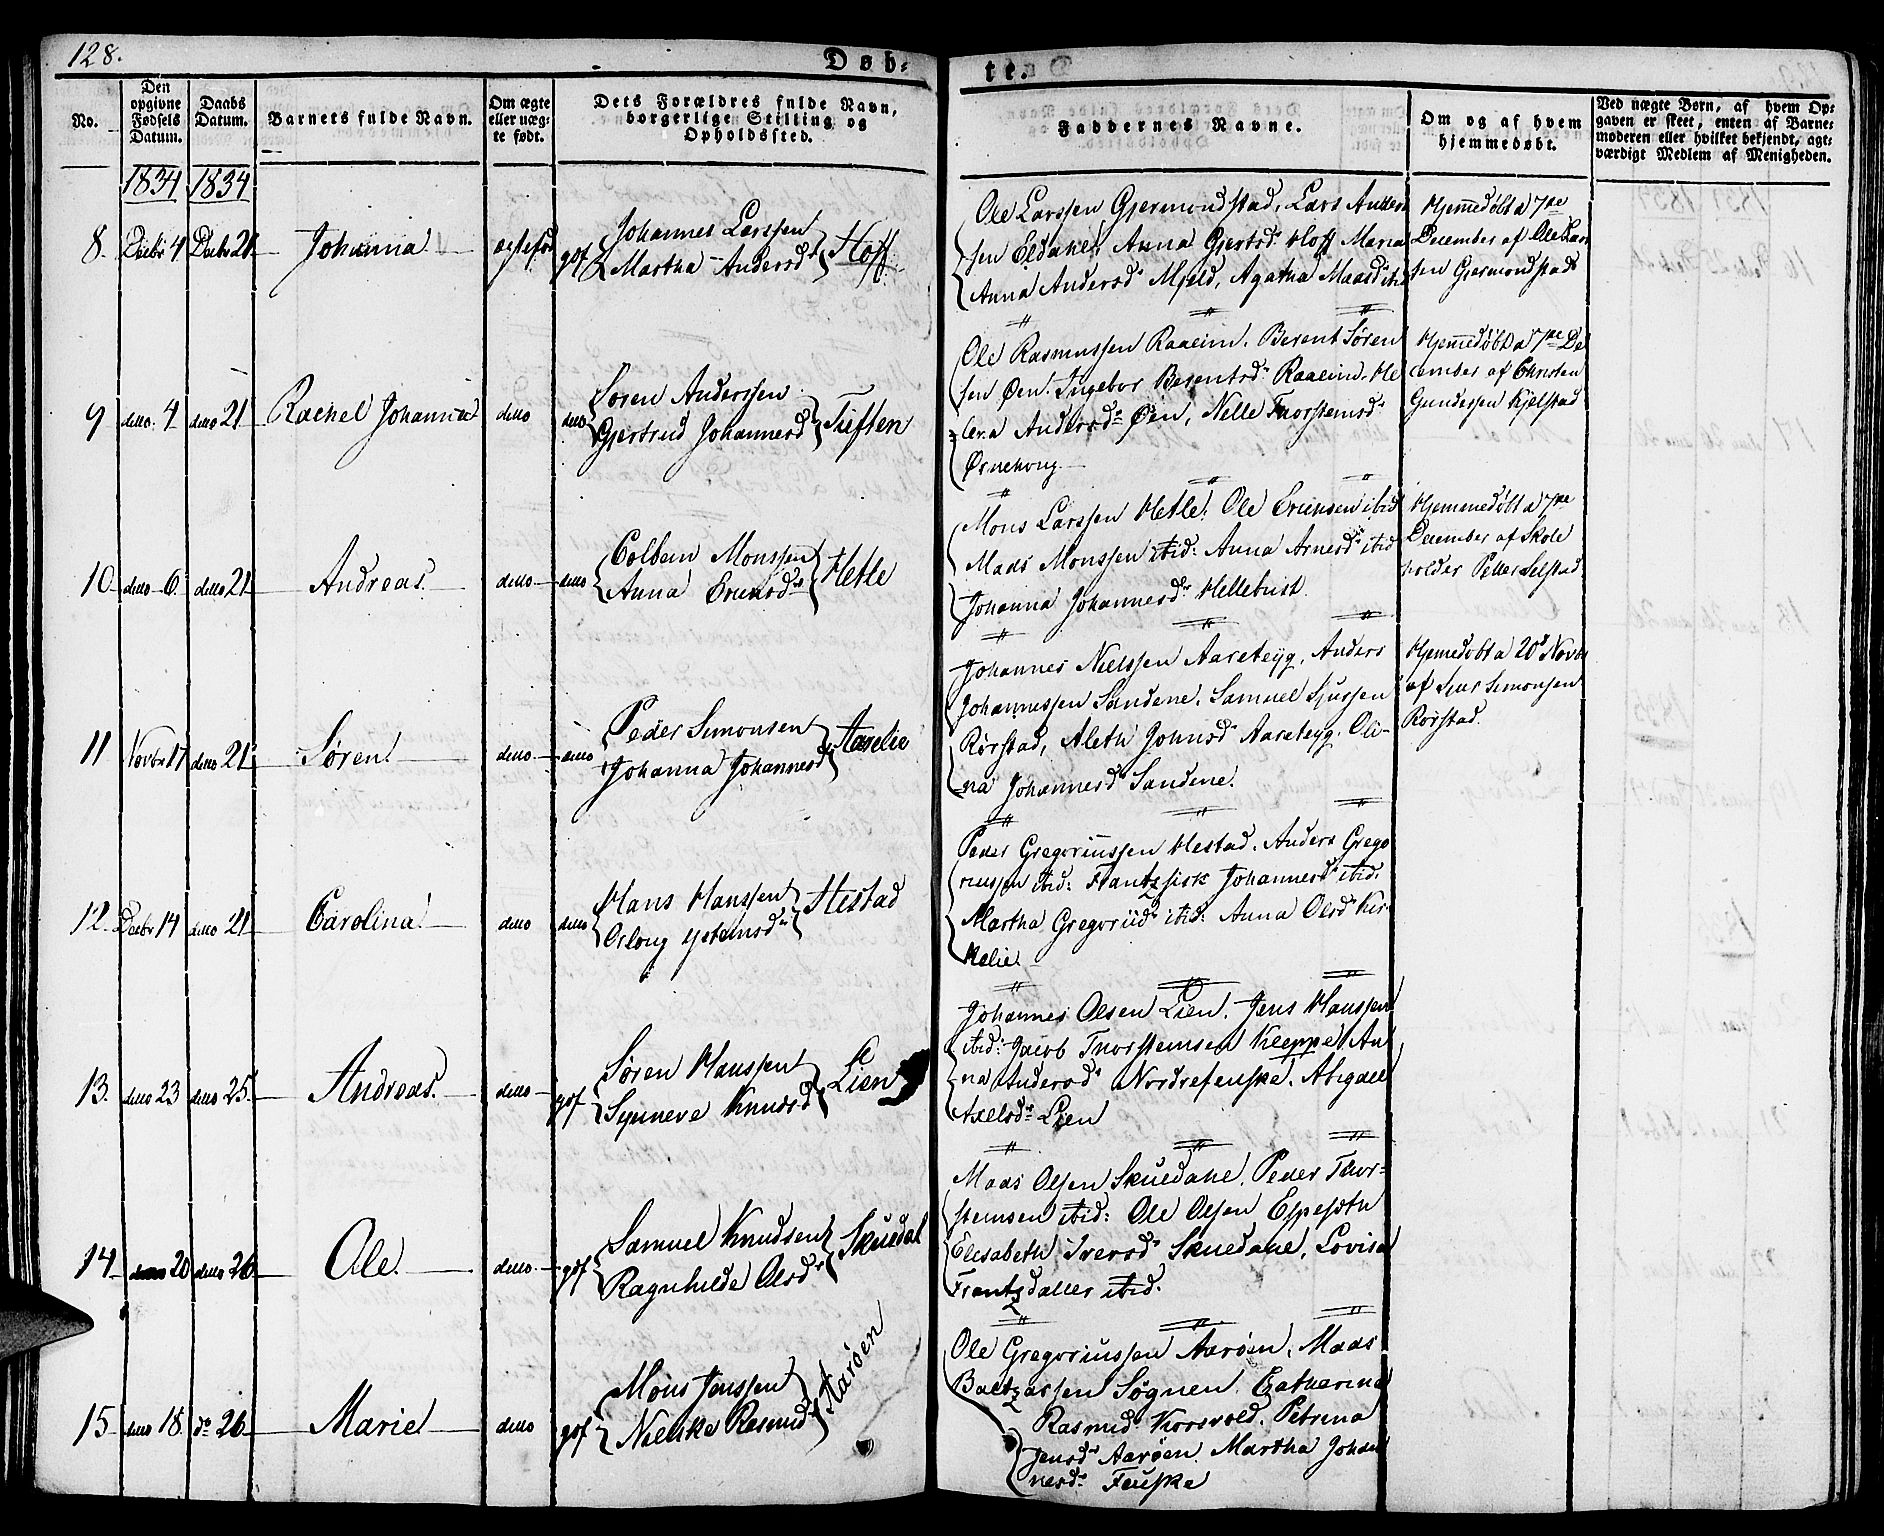 128.
Døb-
te.
No.
Den opgivne Fødsels Datum.
Daabs Datum.
Barnets fulde Navn.
Om ægte eller uægte født.
Dets Forældres fulde Navn, borgerlige Stilling og Opholdssted.
Faddernes Navne.
Om og af hvem hjemmedøbt.
Ved uægte Børn, af hvem Opgaven er skeet, enten af Barnemoderen eller hvilket bekjendt, agtværdigt Medlem af Menigheden.
1834 1834
8. Decbr 4 Decbr 21 Johanna ægtefød gof Johannes Larssen
Martha Andersd: Hoff
Ole Larssen Gjermondstad, Lars Anders
sen Eldaker, Anna Gjertsd: Hoff Maria
Anna Andersd: Mjeld, Agatha Maasd: ibid
Hjemedøbt d 7de
December af Ole Lars
sen Gjermondstad
9 detto. 4 detto 21 Rachel Johanna detto detto Søren Anderssen
Gjertrud Johannesd: Tuften
Ole Rasmussen Raaeim. Berent Søren
sen Øen. Ingebor Berentsd: Raaeim. He
lena Andersd: Øen, Nelle Thorstensd:
Ørnehoug.
Hjemedøbt d 7de De
cember af Christen
Gundersen Kjelstad
10 detto 6 detto 21 Andreas. detto detto Colbein Monssen
Anna Ericksd: Hetle
Mons Larssen Hetle: Ole Ericksen ibid
Mads Monssen ibid: Anna Arnesd: ibid
Johanna Johannesd: Hellebust.
Hjemmedøbt d 7de
December af Skole
holder Petter Selstad
11 Novbr 17 detto 21 Søren detto detto Peder Simonsen
Johanna Johannesd: Aarelie
Johannes Nielssen Aareteyg, Anders
Johannessen Sandene. Samuel Sjurssen
Rørstad, Aleth Johnsd: Aareteyg. Oli-
na Johannesd: Sandene.
Hjemedøbt d 20d Novbr
af Sjur Simonsen
Rørstad.
12. Decbr 14 detto 21 Carolina detto detto Hans Hanssen
Hestad
Peder Gregoriussen Hestad. Anders Grego
riussen ibid: Frantzsisk Johannesd: ibid:
Martha Gregoriid: ibid: Anna Olsd: Kir-
kelie.
13. detto 23 detto 25. Andreas. detto gof Søren Hanssen
Synneve Knudsd: Lien
Johannes Olsen Lien. Jens Hanssen
ibid: Jacob Thorstensen Kleppe An
na Andersd: Nordrefenske. Abigael
Axelsd: Lien
14 detto 20 detto 26 Ole. detto gof Samuel Knudsen
Ragnhilde Olsd: Skuedal
Mads Olsen Skuedahl. Peder Thor-
stensen ibid: Ole Olsen Espeseth
Elisabeth Iversd: Skuedahl, Lovisa
Frantzdatter ibid.
15 detto 18. do 26 Marie detto gof Mons Jenssen
Rasmusd: Aarøen
Ole Gregoriussen Aarøen. Maas
Baltzarssen Søgnen. Catharina
Rasmusd: Korsvold. Petrina
Jensd: Aarøen. Martha Johan
nesd: Fenske